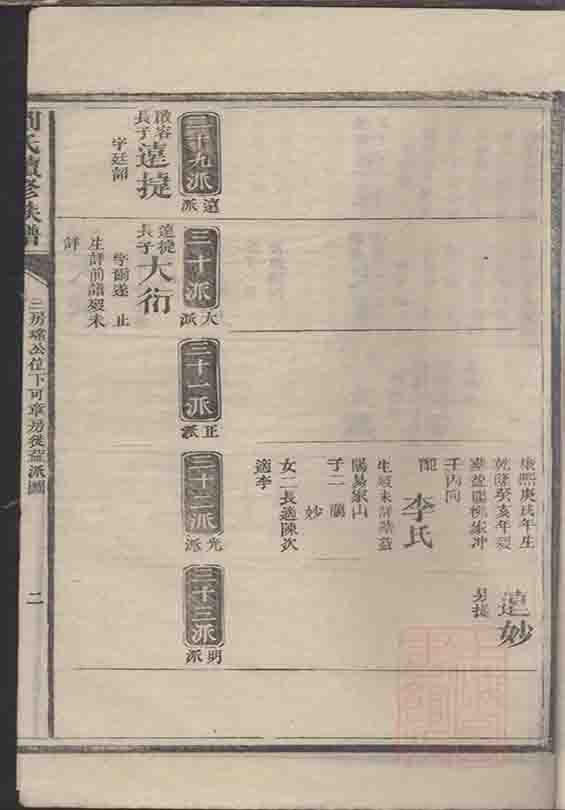 康熙庚戌年生
乾隆癸亥年歿
壬丙向
配李氏
生歿未詳葬益
陽易家山
子二 蘭
妙
女二長適陳次
適李
遠妙
二十九派
遠派
三十派
大派
三十一派
正派
三十二派
光派
三十三派
則派
長子遠捷
字廷韶
遠捷
長子大衍
字爾遂 止
生詳前譜歿未
詳
氏續修族譜
三房瑤公位下可章房從益派圖
二